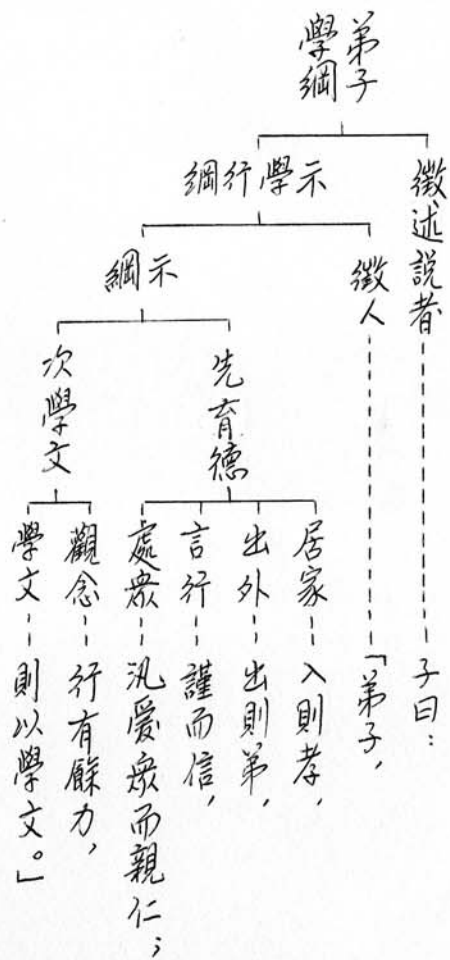 弟子
學綱
徵述說者
子曰:
示學行綱
徵人
「弟子,
示綱
先育德
居家
入則孝,
出外
出則弟,
言行
謹而信,
處衆
汎愛衆而親仁;
次學文
觀念
行有餘力,
學文
則以學文。」